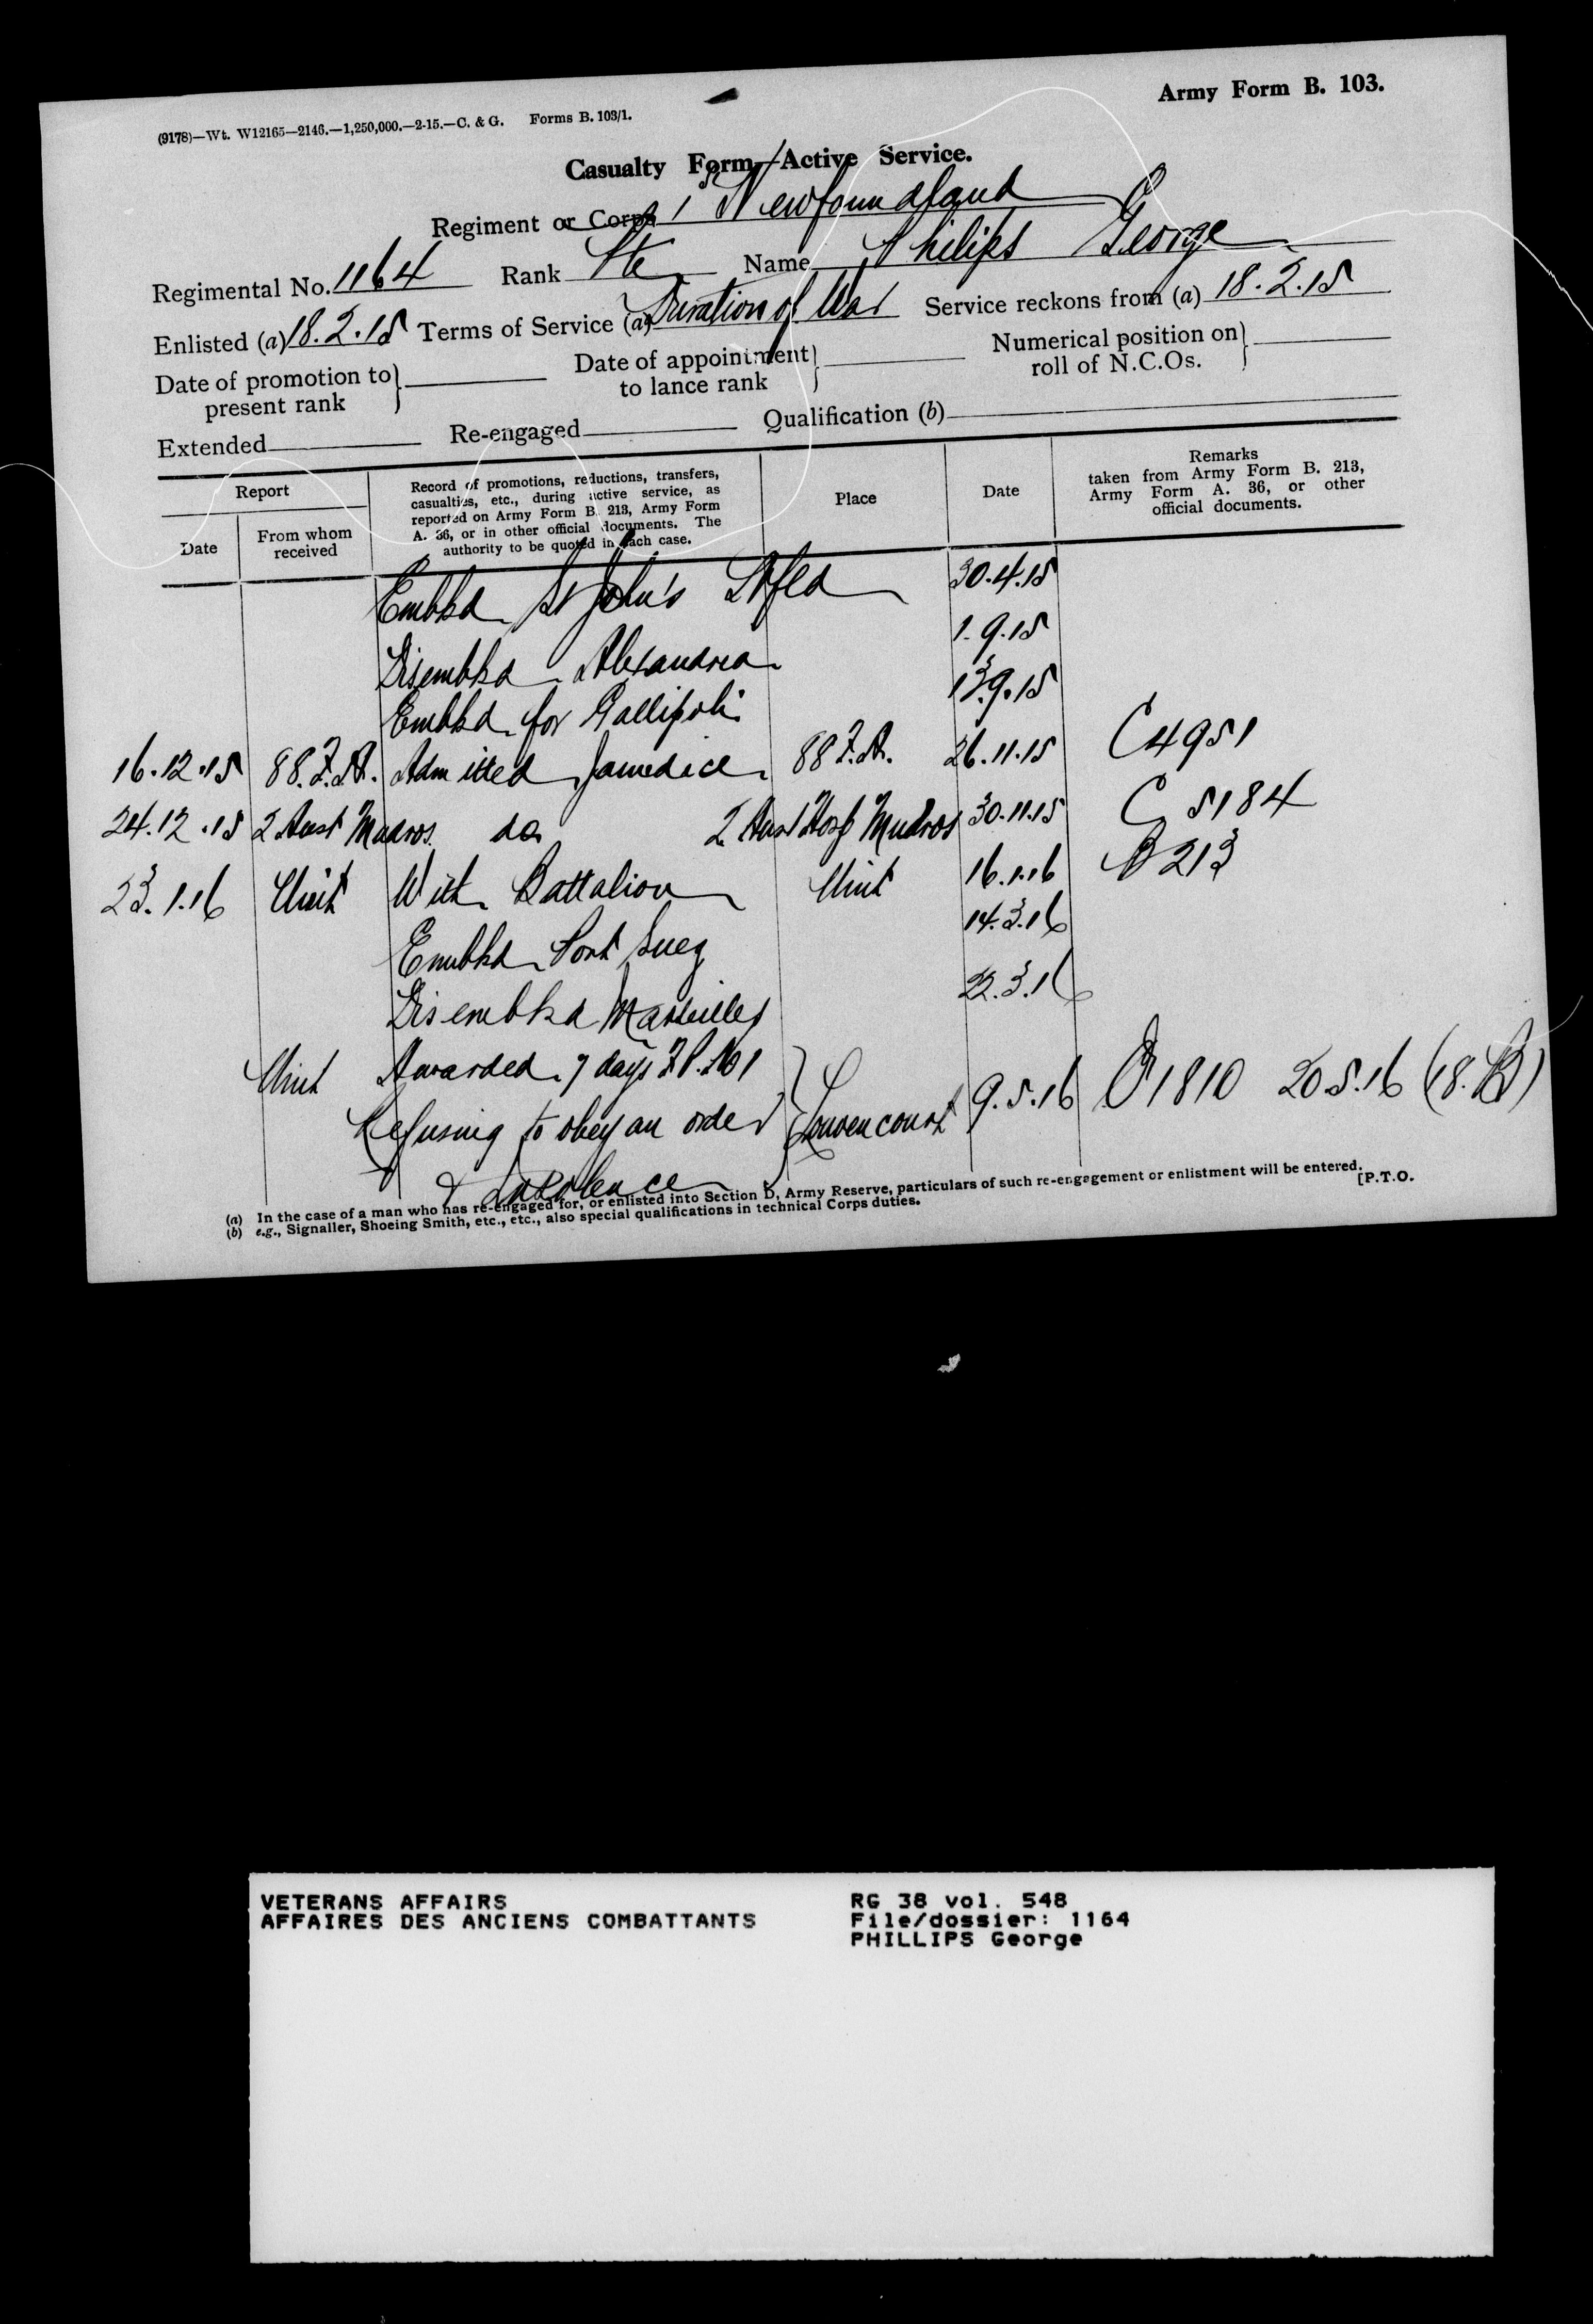 Army Form B. 103.
(9178)—Wt. W12165—2146.—1,250,000.—2-15.—C. & G. Forms B. 103/1.
Casualty Form—Active Service.
Regiment or Corps 1st Newfoundland
Regimental No. 1164 Rank Pte Name Philips George
Enlisted (a) 18.2.15 Terms of Service (a) Duration of War Service reckons from (a) 18.2.15
Date of promotion to present rank Date of appointment to lance rank Numerical position on roll of N.C.Os.
Extended Re-engaged Qualification (b)
Report
Date From whom received
Record of promotions, reductions, transfers, casualties, etc., during active service, as reported on Army Form B. 213, Army Form A. 36, or in other official documents. The authority to be quoted in each case.
Place
Date
Remarks taken from Army Form B. 213, Army Form A. 36, or other official documents.
Embkd St John's Nfld 30.4.15
Disembkd Alexandria 1.9.15
Embkd for Gallipoli 13.9.15
16.12.15 88.F.A. Admitted Jaundice 88 F.A. 26.11.15 C4951
24.12.15 2 Aust Mudros do 2 Aust Hosp Mudros 30.11.15 C 5184
23.1.16 Unit With Battalion Unit 16.1.16 B 213
Embkd Port Suez 14.3.16
Disembkd Marseilles 22.3.16
Unit Awarded 7 days F.P. No 1
Refusing to obey an order Louvencourt 9.5.16 1810 20.5.16
& Insolence
(a) In the case of a man who has re-engaged for, or enlisted into Section D, Army Reserve, particulars of such re-engagement or enlistment will be entered.
(b) e.g., Signaller, Shoeing Smith, etc., etc., also special qualifications in technical Corps duties.
[P.T.O.
VETERANS AFFAIRS RG 38 vol. 548
AFFAIRES DES ANCIENS COMBATTANTS File/dossier: 1164
PHILLIPS George